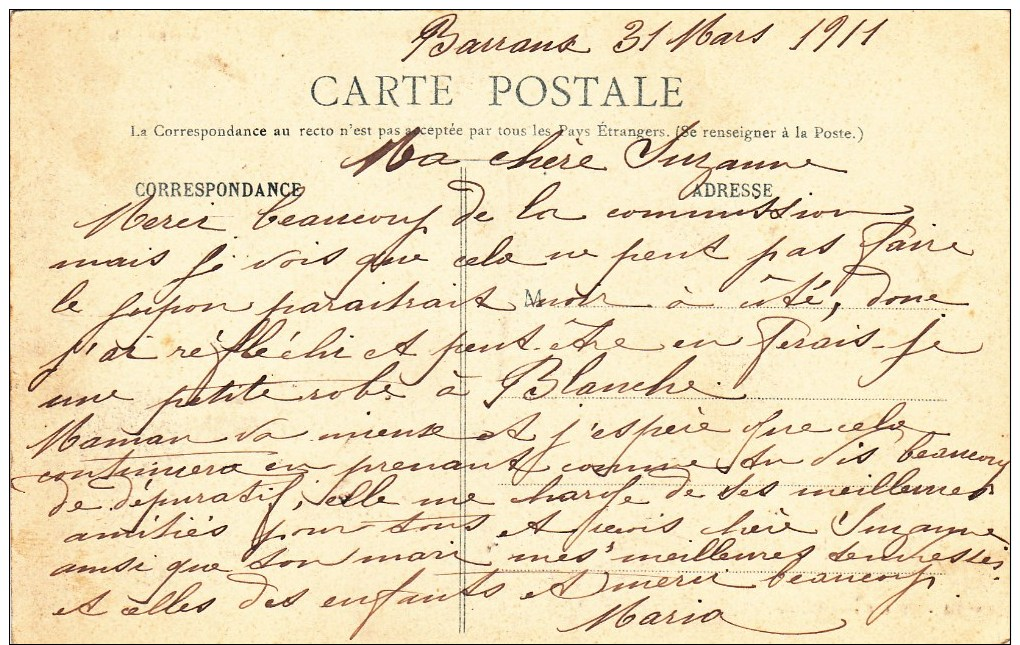 Barraux 31 Mars 1911
CARTE POSTALE
La Correspondance au recto n'est pas acceptée par tous les Pays Étrangers. (Se renseigner à la Poste.)
Ma chère Suzanne
CORRESPONDANCE
ADRESSE
Merci beaucoup de la commission
mais je vois que cela ne peut pas faire
le jupon paraitrait noir à côté, donc
M
j'ai réfléchi et peut-être en ferais-je
une petite robe à Blanche.
Maman va mieux et j'espère que cela
continuera en prenant comme tu dis beaucoup
de dépuratif, elle me charge de ses meilleures
amitiés pour tous et reçois chère Suzanne
ainsi que ton mari mes meilleures tendresses
et celles des enfants et merci beaucoup
Maria